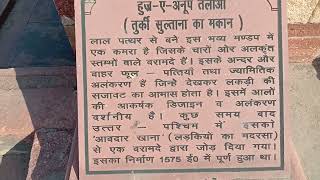 हुज्र-ए-अनूप तलाओ
(तुर्की सुल्ताना का मकान)
लाल पत्थर से बने इस भव्य मण्डप में
एक कमरा है जिसके चारों ओर अलंकृत
स्तम्भों वाले वरामदे हैं। इसके अन्दर और
बाहर फूल – पत्तियों तथा ज्यामितिक
अलंकरण हैं जिन्हे देखकर लकड़ी की
सजावट का आभास होता है। इसमें आलों
की आकर्षक डिजाइन व अलंकरण
दर्शनीय है। कुछ समय बाद
उत्तर – पश्चिम में इसको
'आवदार खाना' (लड़कियों का मदरसा)
से एक वरामदे द्वारा जोड़ दिया गया।
इसका निर्माण 1575 ई० में पूर्ण हुआ था।